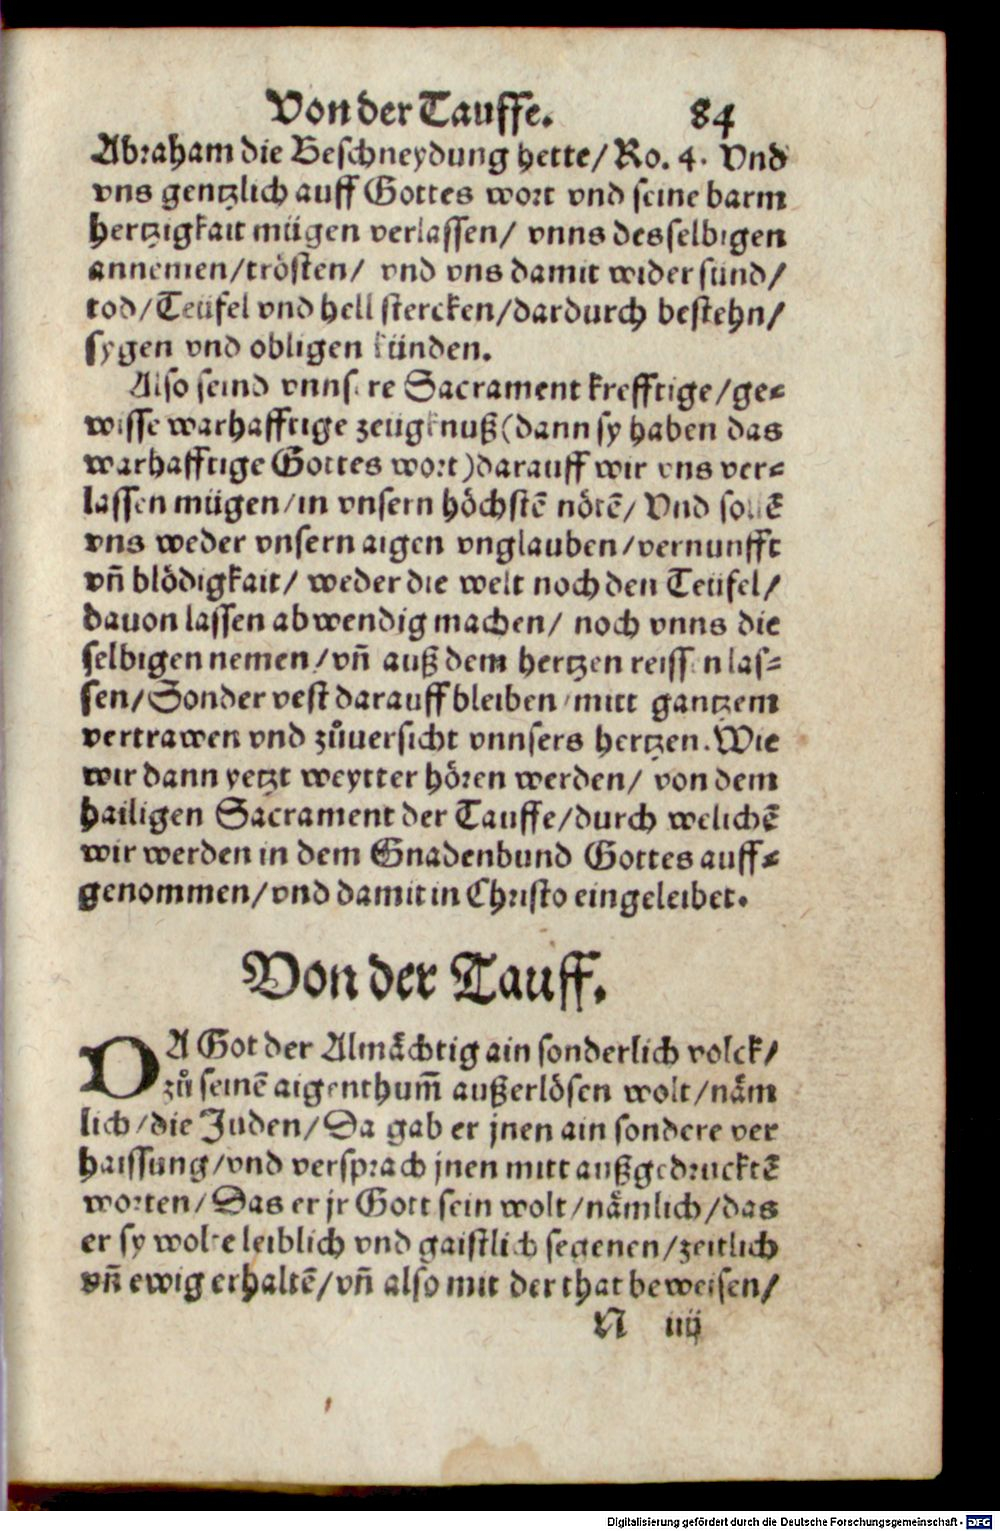 Von der Tauffe. 84
Abraham die Beschneydung hette/ Ro. 4. Vnd
vns gentzlich auff Gottes wort vnd seine barm
hertzigkait mügen verlassen/ vnns desselbigen
annemen/trösten/ vnd vns damit wider sünd/
tod/Teüfel vnd hell stercken/dardurch bestehn/
sygen vnd obligen künden.
Also seind vnnsere Sacrament krefftige/ge-
wisse warhafftige zeügknuß(dann sy haben das
warhafftige Gottes wort)darauff wir vns ver-
lassen mügen/in vnsern höchstē nötē/ Vnd sollē
vns weder vnsern aigen vnglauben/vernunfft
vñ blödigkait/ weder die welt noch den Teüfel/
dauon lassen abwendig machen/ noch vnns die
selbigen nemen/vñ auß dem hertzen reissen las-
sen/Sonder vest darauff bleiben/mitt gantzem
vertrawen vnd zůuersicht vnnsers hertzen.Wie
wir dann yetzt weytter hören werden/ von dem
hailigen Sacrament der Tauffe/durch welichē
wir werden in dem Gnadenbund Gottes auff-
genommen/vnd damit in Christo eingeleibet.
Von der Tauff.
DA Got der Almåchtig ain sonderlich volck/
zů seinē aigenthum̄ außerlösen wolt/nåm
lich/die Juden/Da gab er jnen ain sondere ver
haissung/vnd versprach jnen mitt außgedrucktē
worten/Das er jr Gott sein wolt/nåmlich/das
er sy wolte leiblich vnd gaistlich segenen/zeitlich
vñ ewig erhaltē/vñ also mit der that beweisen/
N iiij
Digitalisierung gefördert durch die Deutsche Forschungsgemeinschaft - DFG